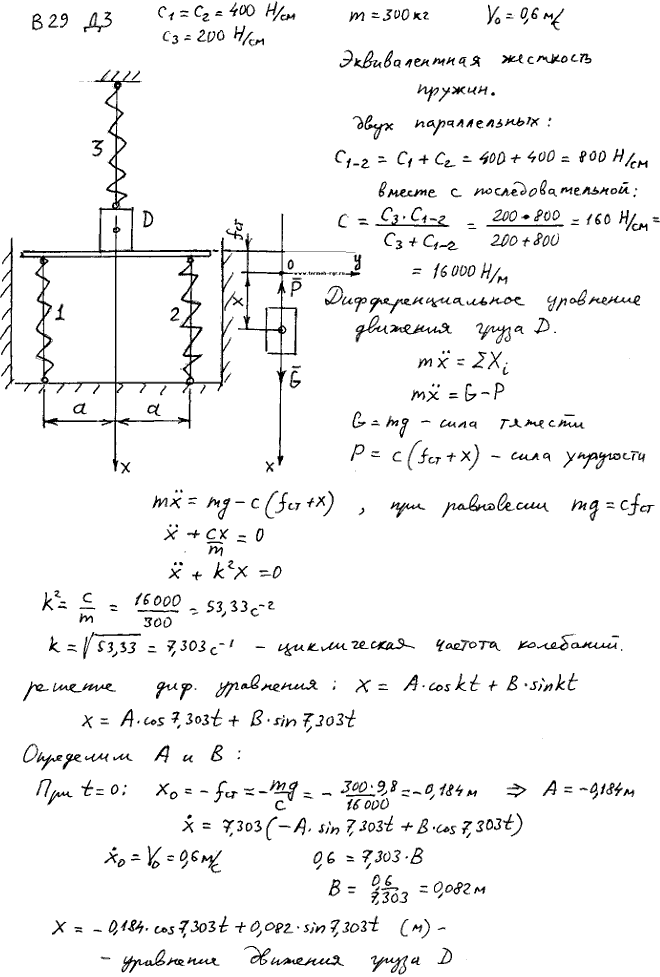 В 29 Д3 C₁ = C₂ = 400 Н/см m = 300 кг V₀ = 0,6 м/с
C₃ = 200 Н/см
Эквивалентная жесткость
пружин.
двух параллельных:
C₁₋₂ = C₁ + C₂ = 400 + 400 = 800 Н/см
вместе с последовательной:
C = C₃·C₁₋₂ / C₃ + C₁₋₂ = 200·800 / 200+800 = 160 Н/см =
= 16000 Н/м
3
D
fст
0
y
www.termeh-rgr.ru
P̄
x
1
2
Ḡ
a
a
x
x
Дифференциальное уравнение
движения груза D.
mẍ = ΣXᵢ
mẍ = G - P
G = mg - сила тяжести
P = c(fст + x) - сила упругости
mẍ = mg - c(fст + x) , при равновесии mg = cfст
ẍ + cx/m = 0
ẍ + k²x = 0
k² = c/m = 16000/300 = 53,33 с⁻²
k = √53,33 = 7,303 с⁻¹ - циклическая частота колебаний.
решение диф. уравнения: x = A·coskt + B·sinkt
x = A·cos7,303t + B·sin7,303t
Определим A и B:
При t=0: x₀ = -fст = -mg/c = - 300·9,8/16000 = -0,184 м ⇒ A = -0,184 м
ẋ = 7,303(-A·sin7,303t + B·cos7,303t)
ẋ₀ = V₀ = 0,6 м/с 0,6 = 7,303·B
B = 0,6/7,303 = 0,082 м
x = -0,184·cos7,303t + 0,082·sin7,303t (м) -
- уравнение движения груза D